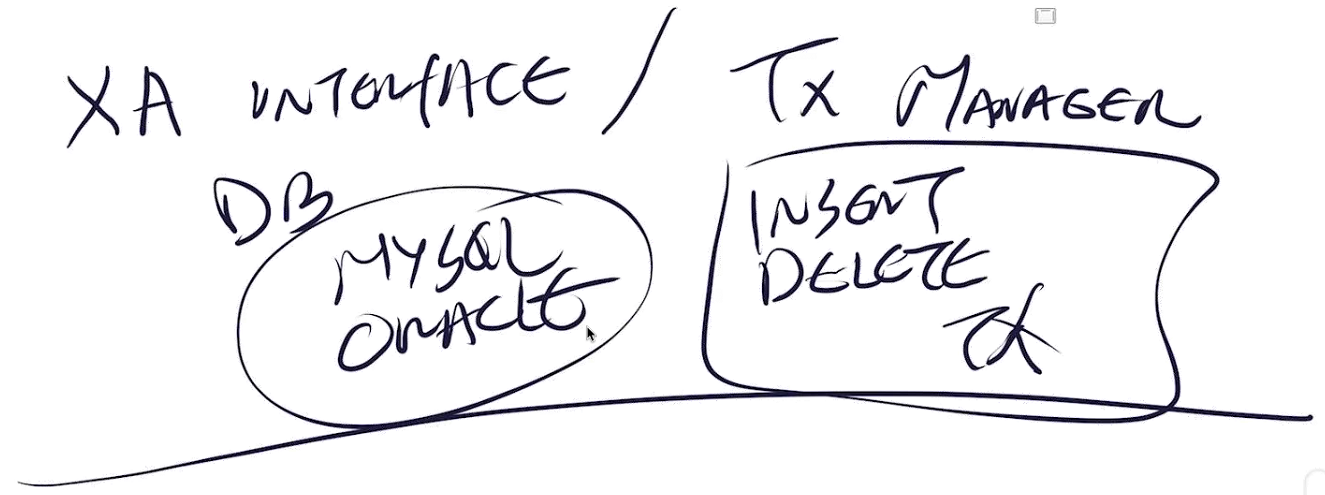 XA INTERFACE / Tx MANAGER
DB
MYSQL
ORACLE
INSERT
DELETE
Tx